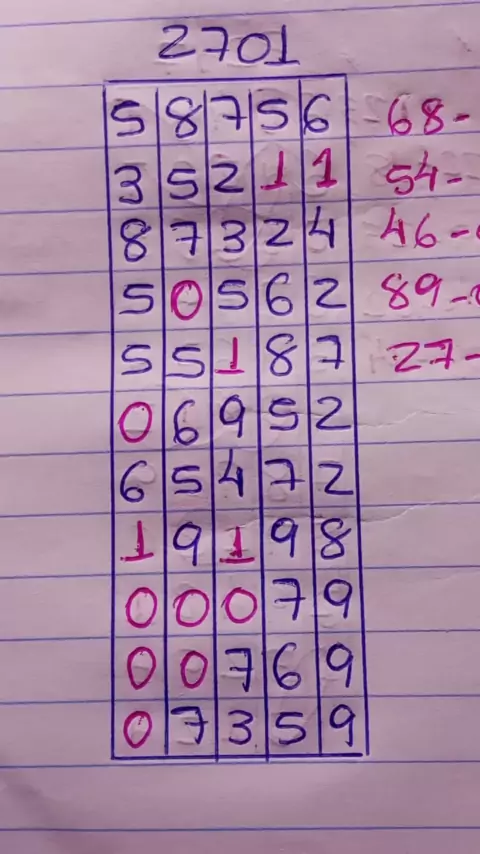 2701
5 8 7 5 6 68-
3 5 2 1 1 54-
8 7 3 2 4 46-
5 0 5 6 2 89-
5 5 1 8 7 27-
0 6 9 5 2
6 5 4 7 2
1 9 1 9 8
0 0 0 7 9
0 0 7 6 9
0 7 3 5 9